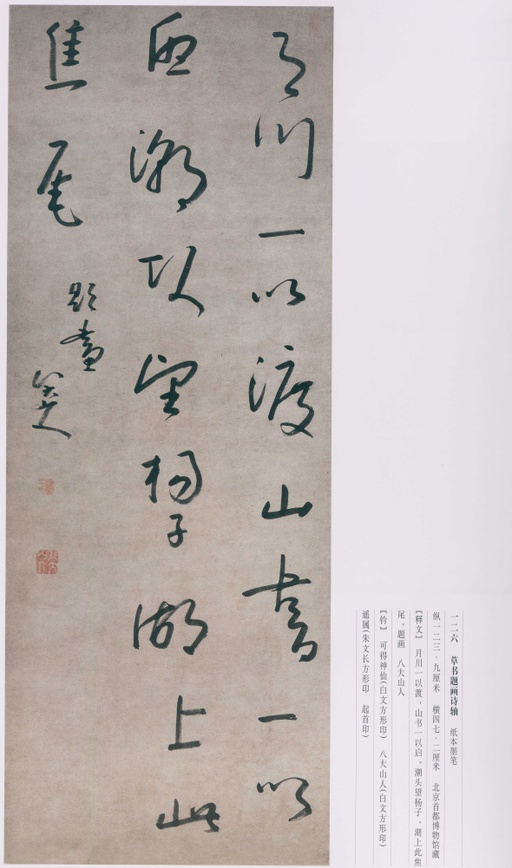 月川一以渡山書一以
启潮頭望楊子湖上此
焦尾
題畫
八大山人
一二六 草书题画诗轴 纸本墨笔
纵一二三·九厘米 横四七·二厘米 北京首都博物馆藏
【释文】 月川一以渡，山书一以启。潮头望杨子，湖上此焦
尾。题画 八大山人
【钤】 可得神仙(白文方形印) 八大山人(白文方形印)
遥属(朱文长方形印 起首印)